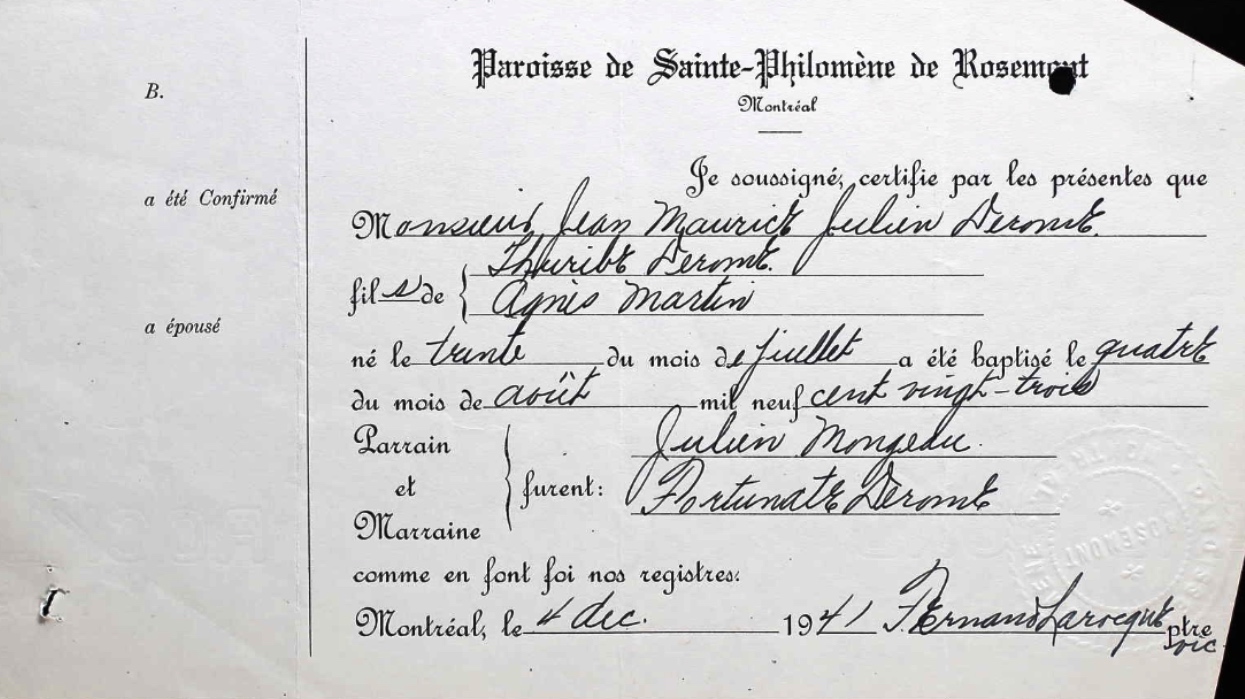 Paroisse de Sainte-Philomène de Rosemont
Montréal
B.
Je soussigné, certifie par les présentes que
a été Confirmé
Monsieur Jean Maurice Julien Derome.
Thuribe Derome.
fils de
Agnès Martin
a épousé
né le trente du mois de juillet a été baptisé le quatre
du mois de août mil neuf cent vingt-trois
Parrain
Julien Mongeau.
et furent:
Fortunate Derome
Marraine
comme en font foi nos registres.
Montréal, le 4 dec. 1941 Fernand Larocque ptre
vic
ROSEMONT